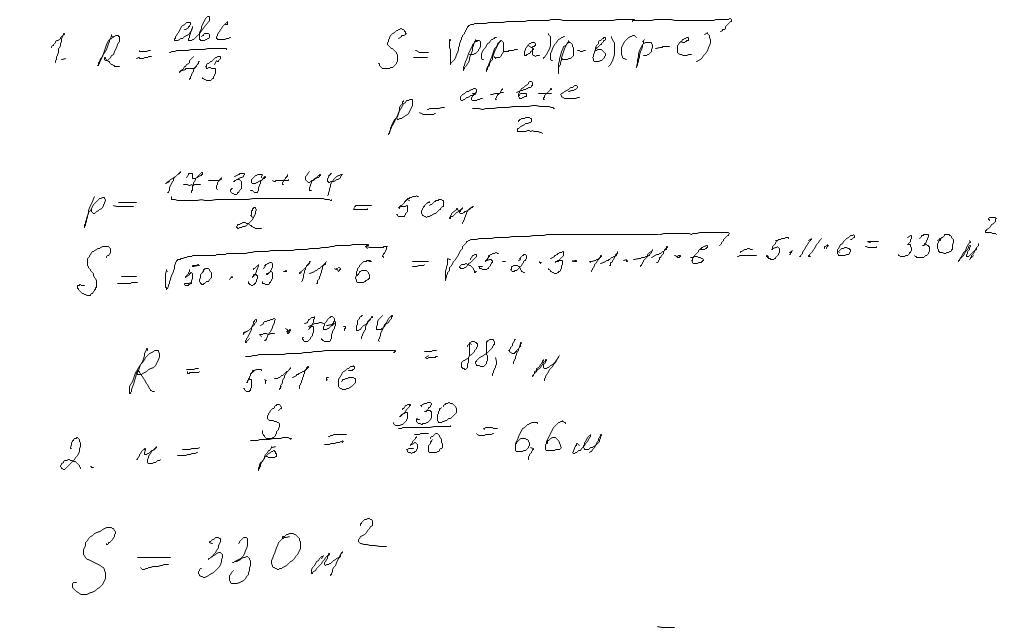 1. R = abc/4S S = √p(p-a)(p-в)(p-c)
p = a+в+c/2
p = 17+39+44/2 = 50 м
S = √50·33·11·6 = √25·2·3·11·11·6 = 5·11·6 = 330 м²
R = 17·39·44/5·11·6 = 88,4 м
2. r = S/p = 330/50 = 6,6 м
S = 330 м²